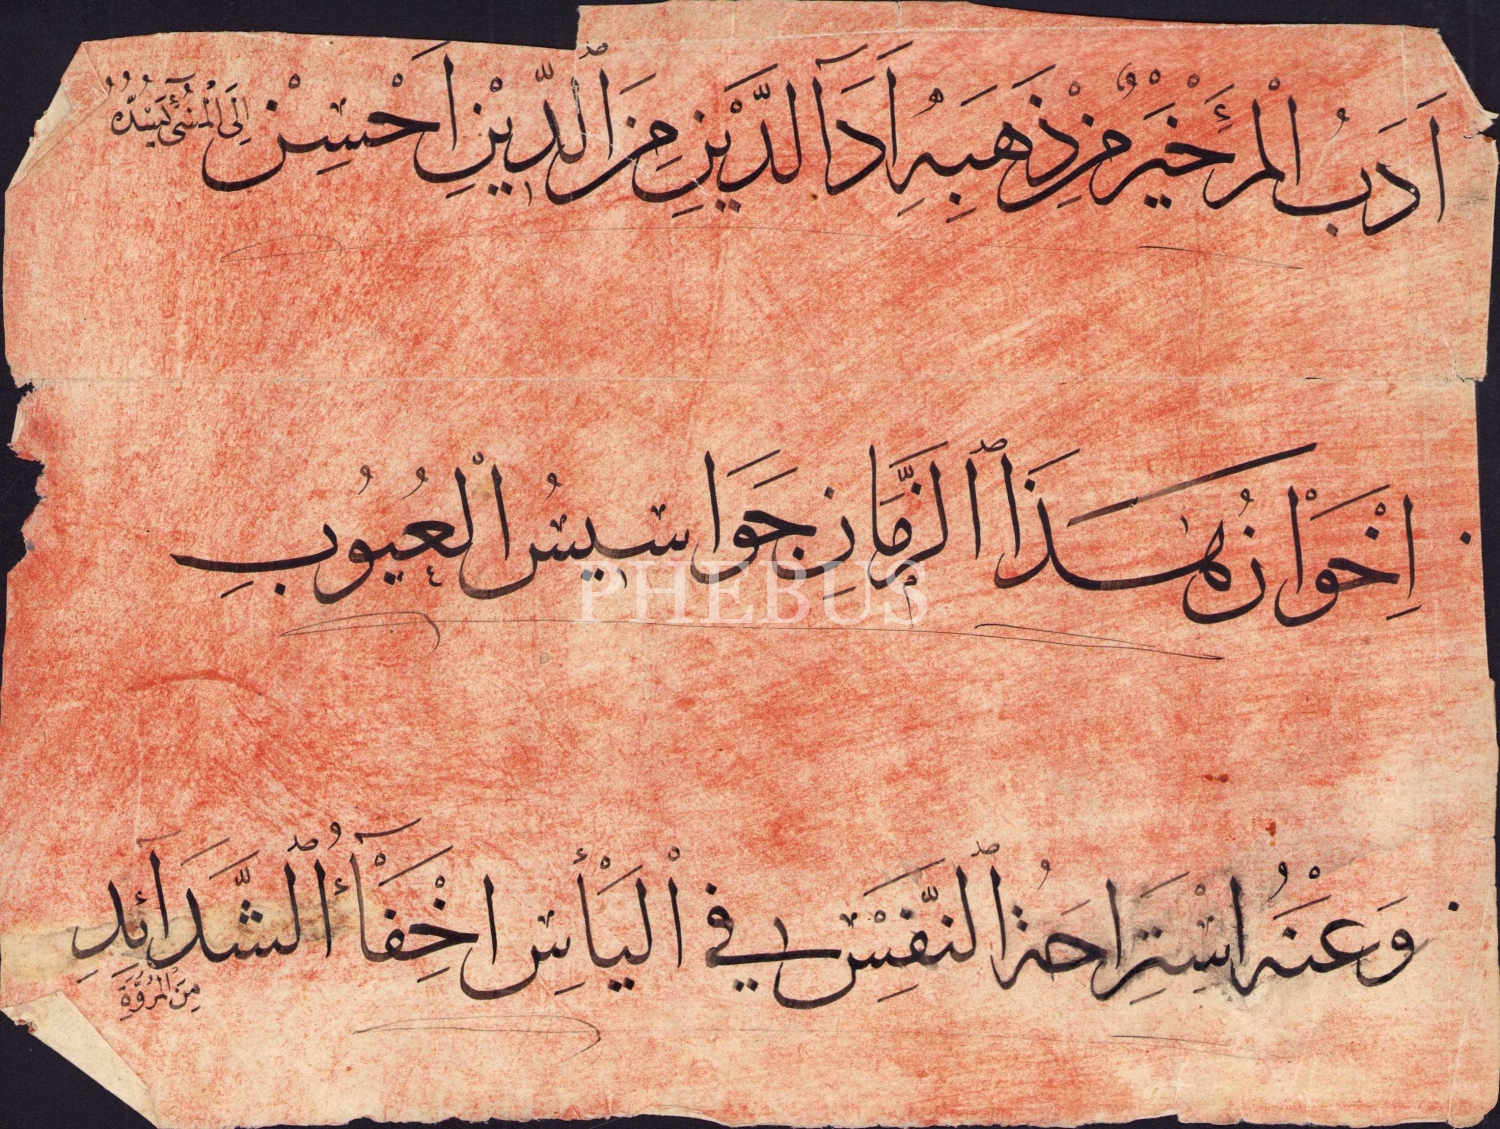 اَدَبُ الْمَرْءِ خَيْرٌ مِنْ ذَهَبِهِ اَدَآءُ الدَّيْنِ مِنَ الدِّينِ اَحْسِنْ اِلَى الْمُسِىءِ تَسُدْهُ
اِخْوَانُ هٰذَا الزَّمَانِ جَوَاسِيسُ الْعُيُوبِ
وَعَنْهُ اسْتِرَاحَةُ النَّفْسِ فِي الْيَأْسِ اِخْفَآءُ الشَّدَآئِدِ مِنَ الْمُرُوَّةِ
PHEBUS